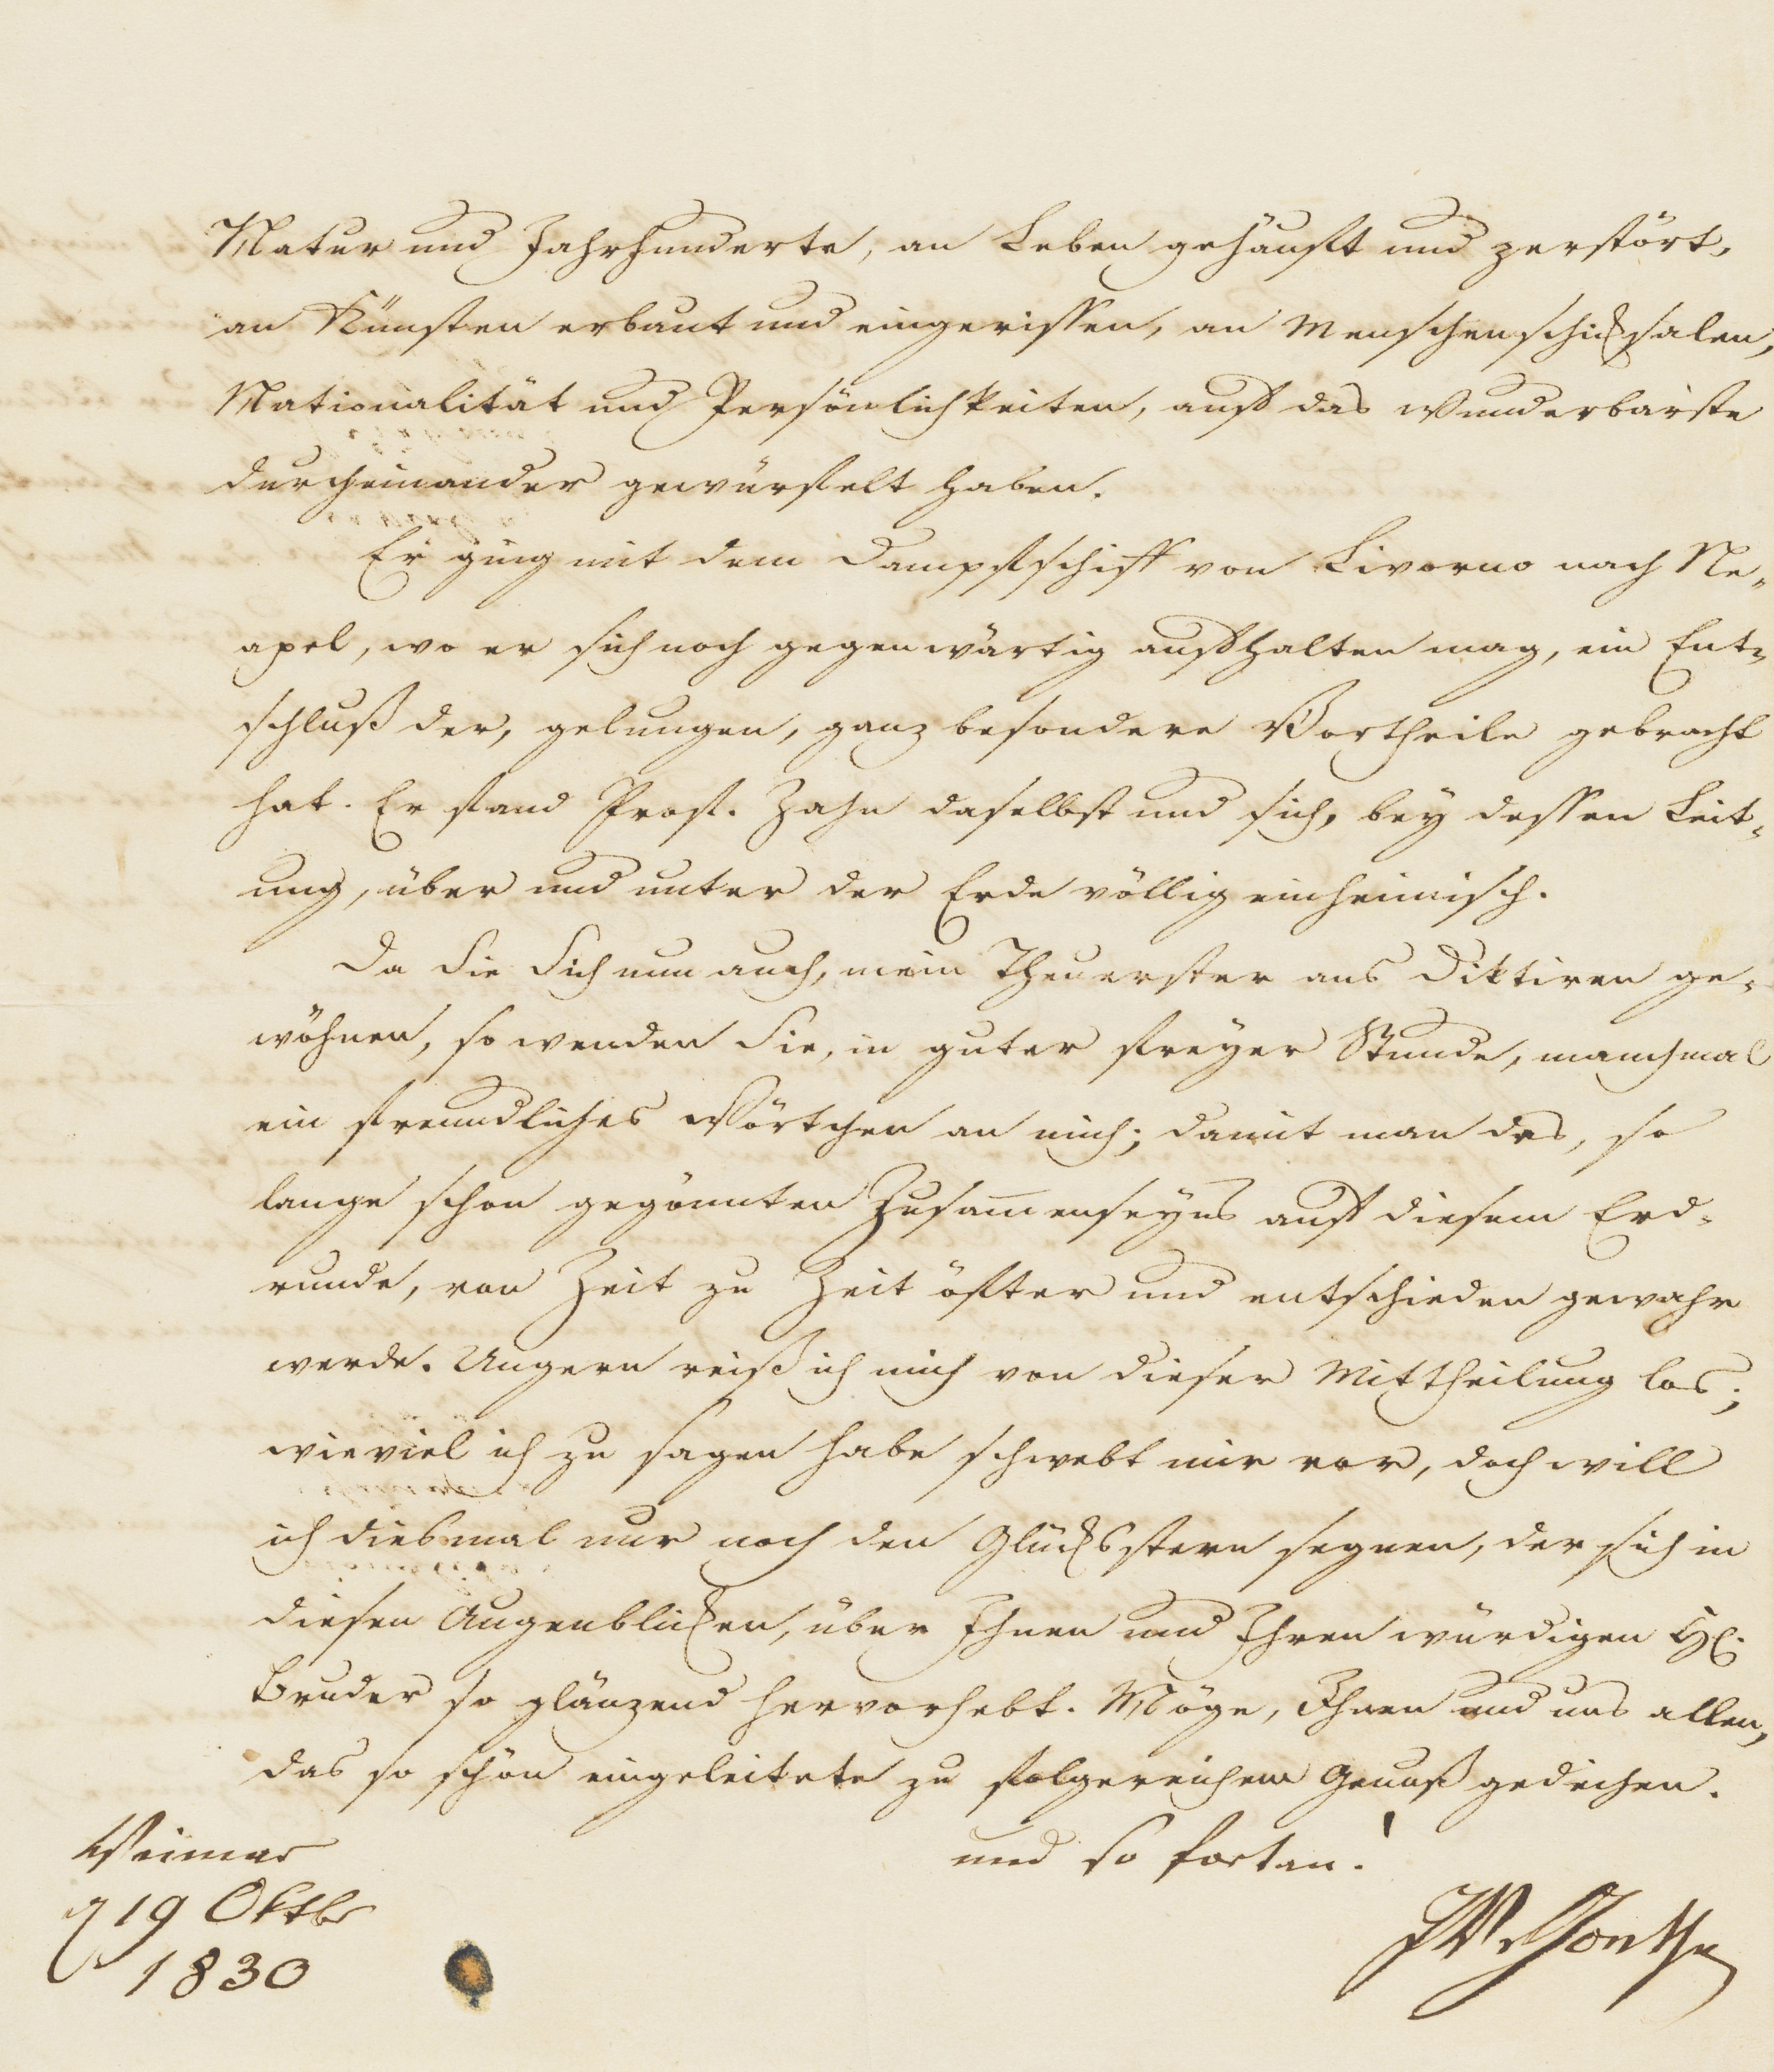 Natur und Jahrhunderte, an Leben gehäuft und zerstört,
an Künsten erbaut und eingerissen, an Menschenschicksalen,
Nationalität und Persönlichkeiten, auf das wunderbarste
durcheinander gewürfelt haben.
Er ging mit dem Dampfschiff von Livorno nach Ne-
apel, wo er sich noch gegenwärtig aufhalten mag, ein Ent-
schluß der, gelungen, ganz besondere Vortheile gebracht
hat. Er fand Prof. Zahn daselbst und sich, bey dessen Leit-
ung, über und unter der Erde völlig einheimisch.
Da Sie Sich nun auch, mein Theuerster ans Diktiren ge-
wöhnen, so wenden Sie, in guter freyer Stunde, manchmal
ein freundliches Wörtchen an mich; damit man des, so
lange schon gegönnten Zusam̅enseyns auf diesem Erd-
runde, von Zeit zu Zeit öfter und entschieden gewahr
werde. Ungern reiß ich mich von dieser Mittheilung los;
wieviel ich zu sagen habe schwebt mir vor, doch will
ich diesmal nur noch den Glücksstern segnen, der sich in
diesen Augenblicken, über Ihnen und Ihren würdigen H.
Bruder so glänzend hervorhebt. Möge, Ihnen und uns allen,
das so schön eingeleitete zu folgereichem Genuß gedeihen.
und so fortan!
Weimar
d 19 Oktbr
1830
JWvGoethe